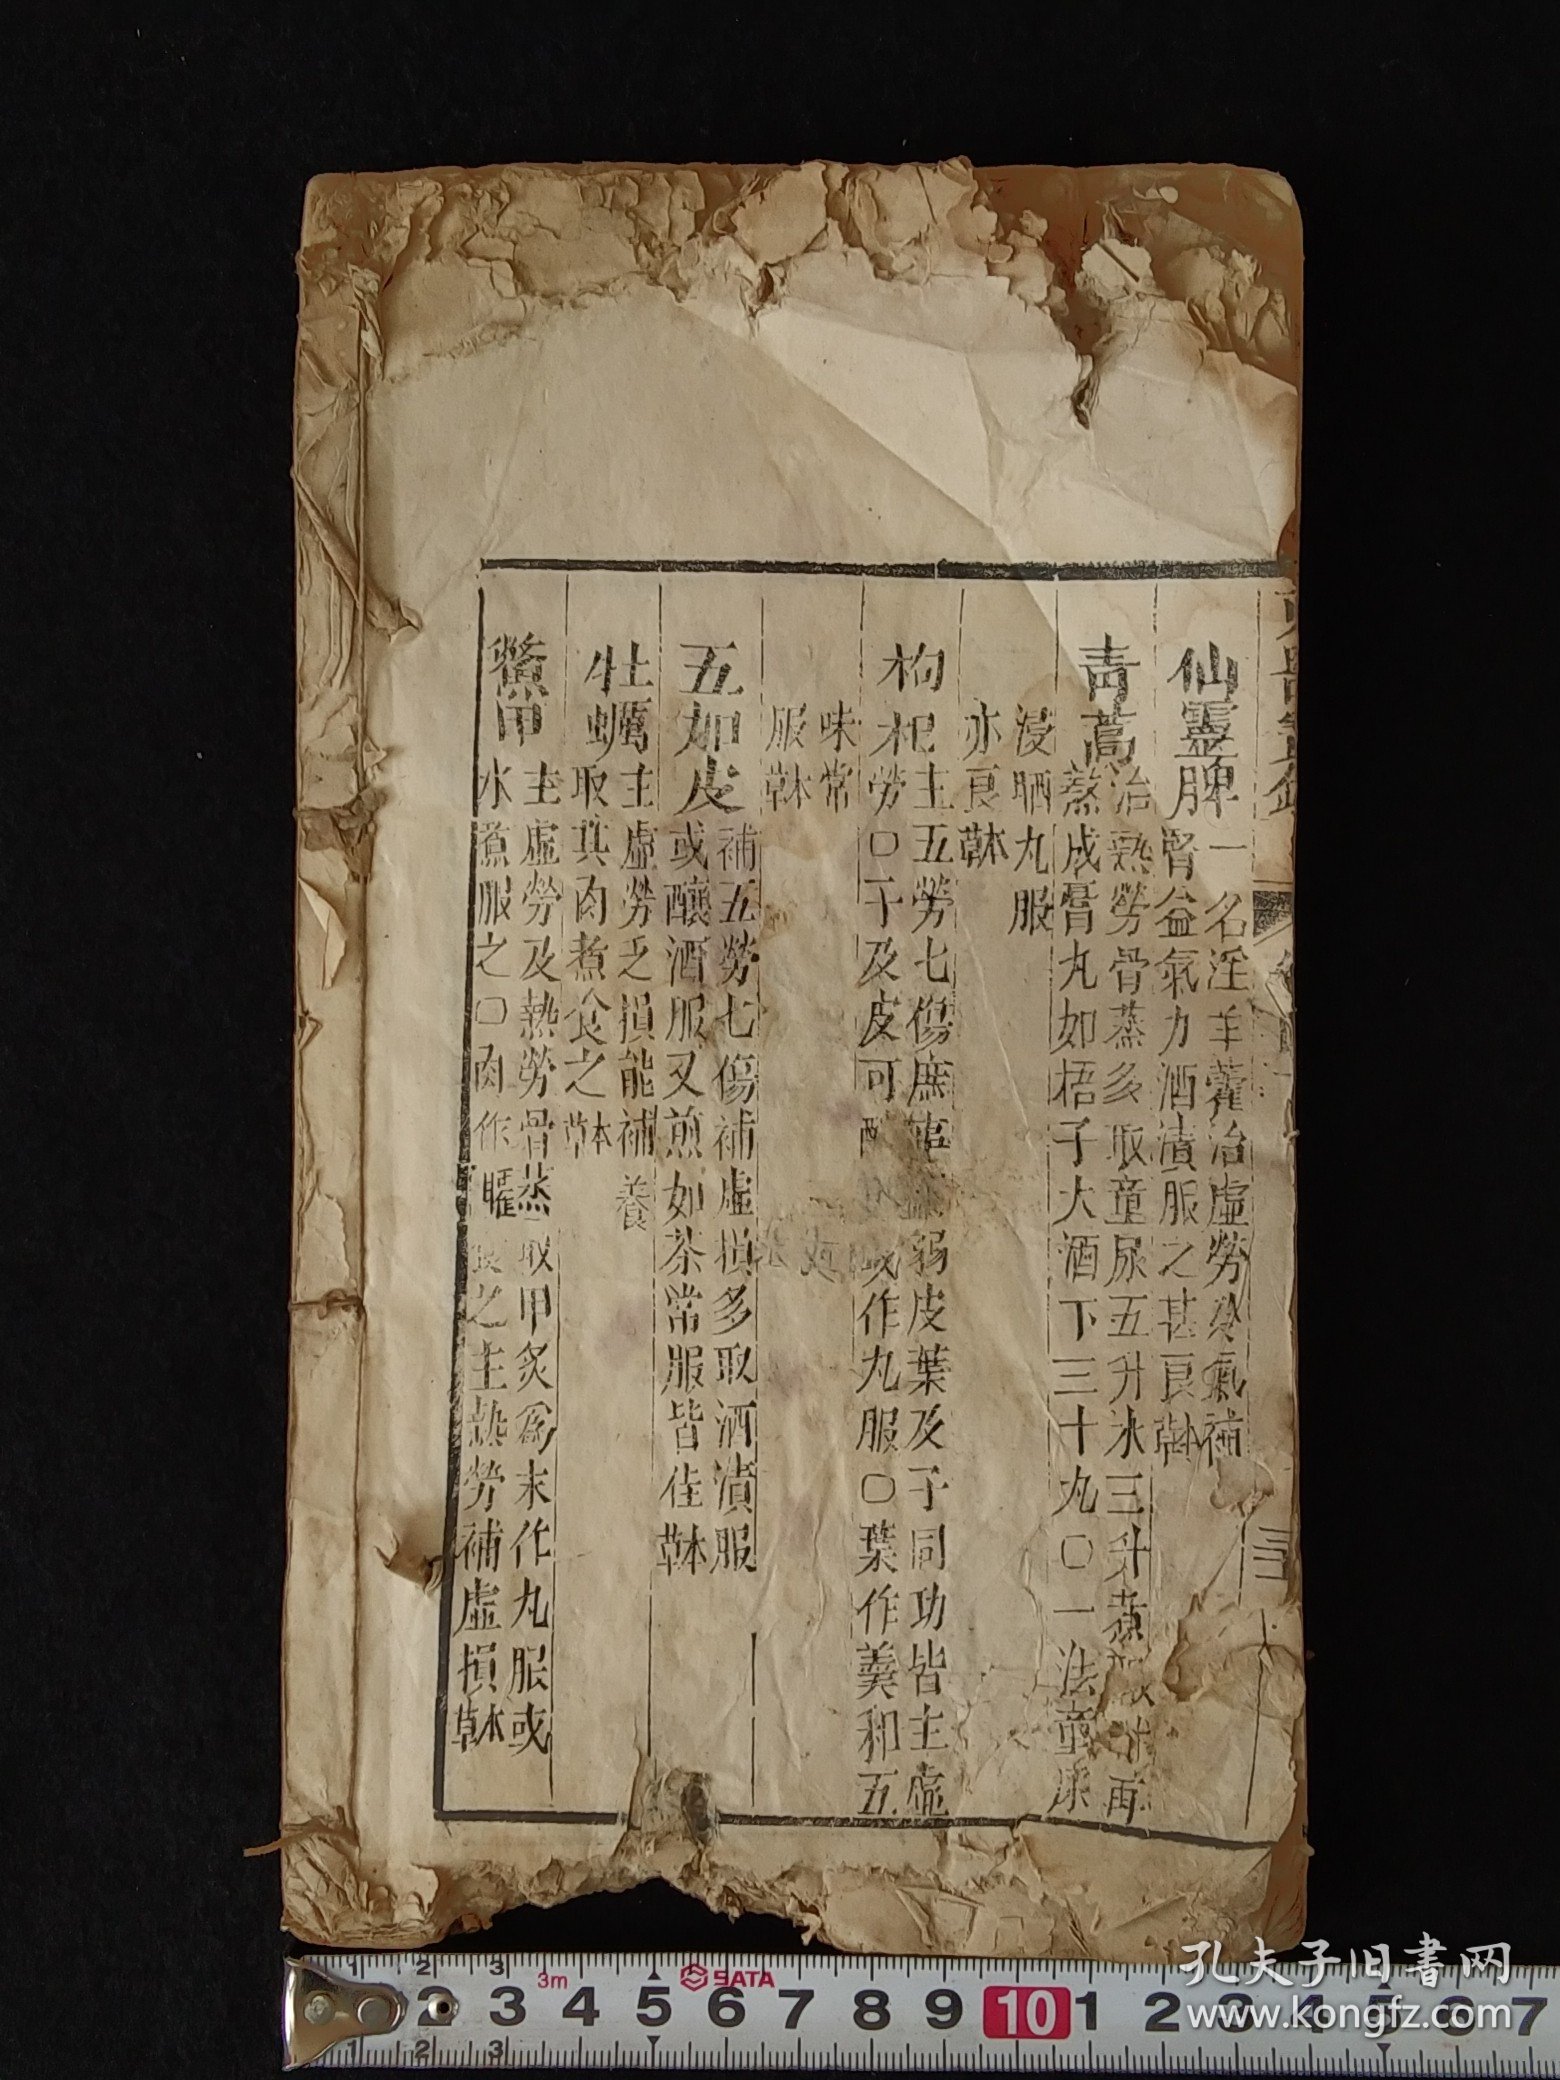 仙靈脾
一名淫羊藿治虛勞冷氣補
腎益氣力酒漬服之甚良
青蒿
治熱勞骨蒸多取童尿五升水三升煮
蒸成膏丸如梧子大酒下三十丸〇一法童尿
浸晒丸服
亦良
枸杞
主五勞七傷庶事弱皮葉及子同功皆主虛
勞〇子及皮可
或作丸服〇葉作羹和五
味常
服
五加皮
補五勞七傷補虛損多取酒漬服
或釀酒服又煎如茶常服皆佳
牡蠣
主虛勞乏損能補養
取其肉煮食之
鱉甲
主虛勞及熱勞骨蒸取甲炙爲末作丸服或
水煮服之〇肉作臛食之主熱勞補虛損
三十
3m SATA
1 2 3
2 3 4 5 6 7 8 9 10 1 2 3 4 5 6 7
1 2 3
孔夫子旧书网
www.kongfz.com